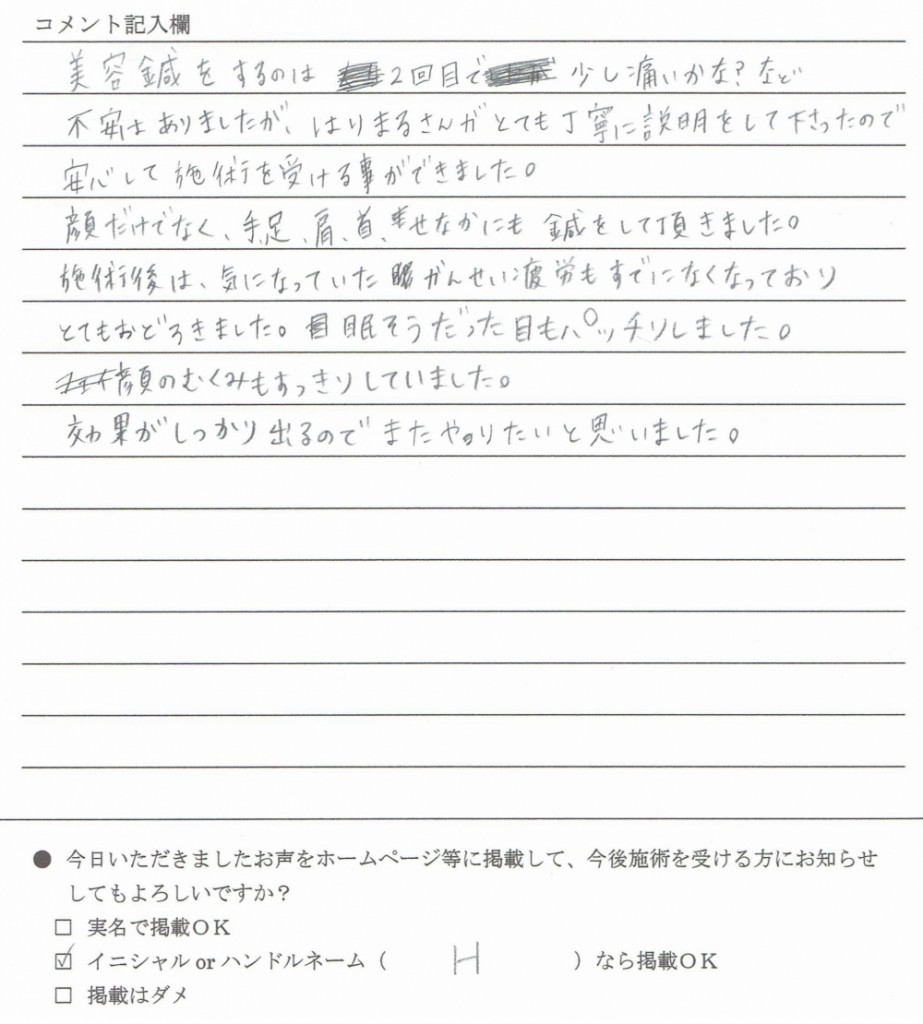 コメント記入欄
美容鍼をするのは 2回目で 少し痛いかな?など
不安はありましたが、はりまるさんがとても丁寧に説明をして下さったので
安心して施術を受ける事ができました。
顔だけでなく、手,足、肩、首、せなかにも 鍼をして頂きました。
施術後は、気になっていた がんせい疲労もすでになくなっており
とてもおどろきました。眠そうだった目もパッチリしました。
顔のむくみもすっきりしていました。
効果がしっかり出るので またやりたいと思いました。
● 今日いただきましたお声をホームページ等に掲載して、今後施術を受ける方にお知らせ
してもよろしいですか?
□ 実名で掲載OK
☑ イニシャル or ハンドルネーム( H )なら掲載OK
□ 掲載はダメ